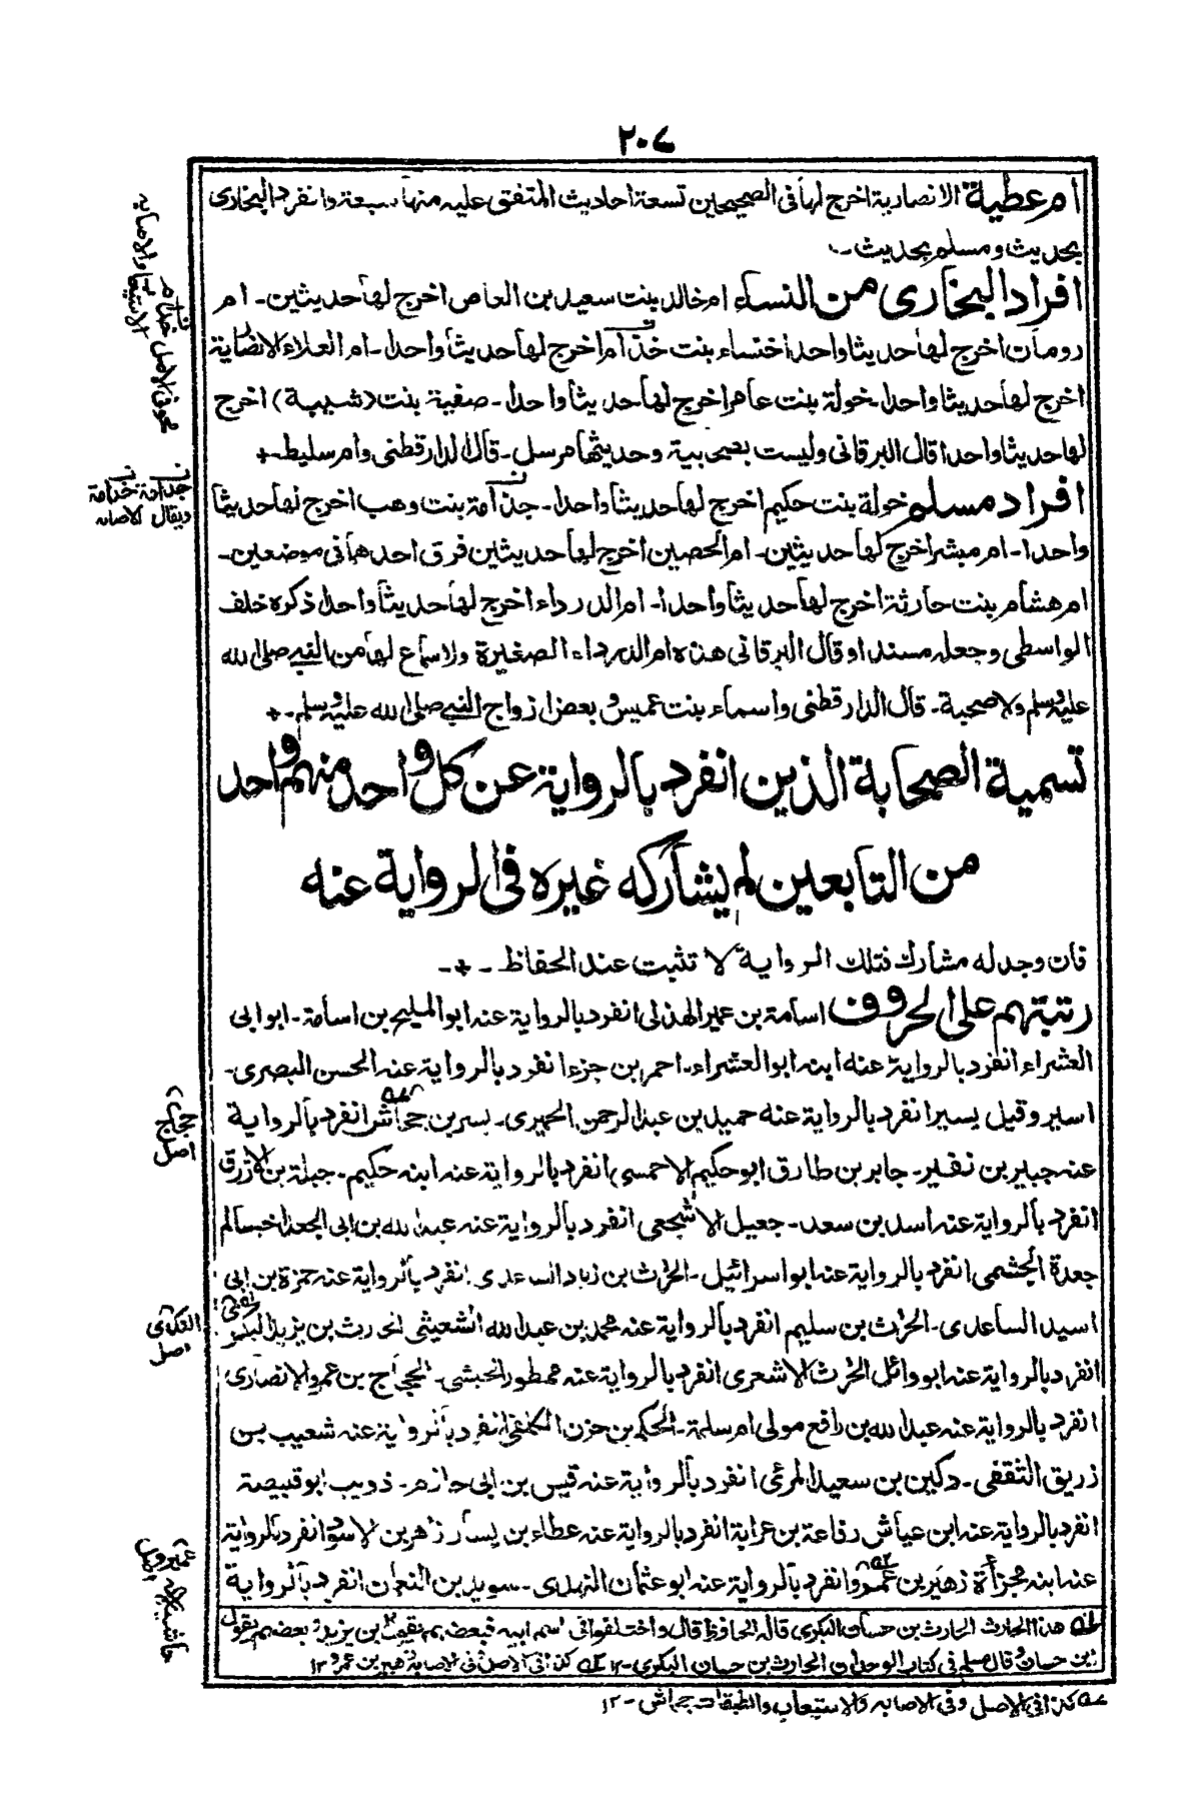 ٢٠٧
ام عطية الانصارية اخرج لها فى الصحيحين تسعة احاديث المتفق عليه منها سبعة وانفرد البخارى
بحديث ومسلم بحديث -
افراد البخارى من النساء ام خالد بنت سعيد بن العاص اخرج لها حديثين - ام
رومان اخرج لها حديثا واحدا خنساء بنت خذام اخرج لها حديثا واحدا - ام العلاء الانصارية
اخرج لها حديثا واحدا - خولة بنت عامر اخرج لها حديثا واحدا - صفية بنت (شيبة) اخرج
لها حديثا واحدا قال البرقانى وليست بصحبية وحديثها مرسل - قال الدارقطنى وام سليط -+
افراد مسلم خولة بنت حكيم اخرج لها حديثا واحدا - جذامة بنت وهب اخرج لها حديثا
واحدا - ام مبشر اخرج لها حديثين - ام الحصين اخرج لها حديثين فرق احدهما فى موضعين -
ام هشام بنت حارثة اخرج لها حديثا واحدا - ام الدرداء اخرج لها حديثا واحدا ذكره خلف
الواسطى وجعله مسندا وقال البرقانى هذه ام الدرداء الصغيرة ولا سماع لها من النبى صلى الله
عليه وسلم ولا صحبة - قال الدارقطنى واسماء بنت عميس وبعض ازواج النبى صلى الله عليه وسلم -+
تسمية الصحابة الذين انفرد بالرواية عن كل واحد منهم واحد
من التابعين لم يشاركه غيره فى الرواية عنه
فان وجد له مشارك فتلك الرواية لا تثبت عند الحفاظ -+-
رتبتهم على الحروف اسامة بن عمير الهذلى انفرد بالرواية عنه ابو المليح بن اسامة - ابو ابى
العشراء انفرد بالرواية عنه ابنه ابو العشراء - احمر بن جزء انفرد بالرواية عنه الحسن البصرى -
اسير وقيل يسير انفرد بالرواية عنه حميد بن عبد الرحمن الحميرى - بسر بن جحاش انفرد بالرواية
عنه جبير بن نفير - جابر بن طارق ابو حكيم الاحمسى انفرد بالرواية عنه ابنه حكيم - جبلة بن الازرق
انفرد بالرواية عنه راشد بن سعد - جعيل الاشجعى انفرد بالرواية عنه عبد الله بن ابى الجعد اخو سالم
جعدة الجشمى انفرد بالرواية عنه ابو اسرائيل - الحرث بن زياد الساعدى انفرد بالرواية عنه حمزة بن ابى
اسيد الساعدى - الحرث بن سليم انفرد بالرواية عنه محمد بن عبد الله الشعيثى الحرث بن يزيد البكرى
انفرد بالرواية عنه ابو وائل الحرث الاشعرى انفرد بالرواية عنه ممطور الحبشى - الحجاج بن عمرو الانصارى
انفرد بالرواية عنه عبد الله بن رافع مولى ام سلمة - الحكم بن حزن الكلفى انفرد بالرواية عنه شعيب بن
زريق الثقفى - دكين بن سعيد المزنى انفرد بالرواية عنه قيس بن ابى حازم - ذويب ابو قبيصة
انفرد بالرواية عنه ابن عياش رفاعة بن عرابة انفرد بالرواية عنه عطاء بن يسار زاهر بن الاسود انفرد بالرواية
عنه ابنه مجزأة زهير بن عمرو انفرد بالرواية عنه ابو عثمان النهدى - سويد بن النعمان انفرد بالرواية
هذا الحارث الحارث بن حسان البكرى قاله الحافظ قال واختلفوا فى اسم ابيه فبعضهم يقول بن يزيد وبعضهم يقول
بن حسان وقال مسلم فى كتاب الوحدان الحارث بن حسان البكرى - ١٢ كذا فى الاصل فى الاصابة زهير بن عمرو ١٢
كذا فى الاصل وفى الاصابه والاستيعاب والطبقات جحاش - ١٢
فى الاصل خدام
الاستيعاب والاصابه
جدامة خدامة
ويقال الاصابه
حجاج
اصل
الفكرى
اصل